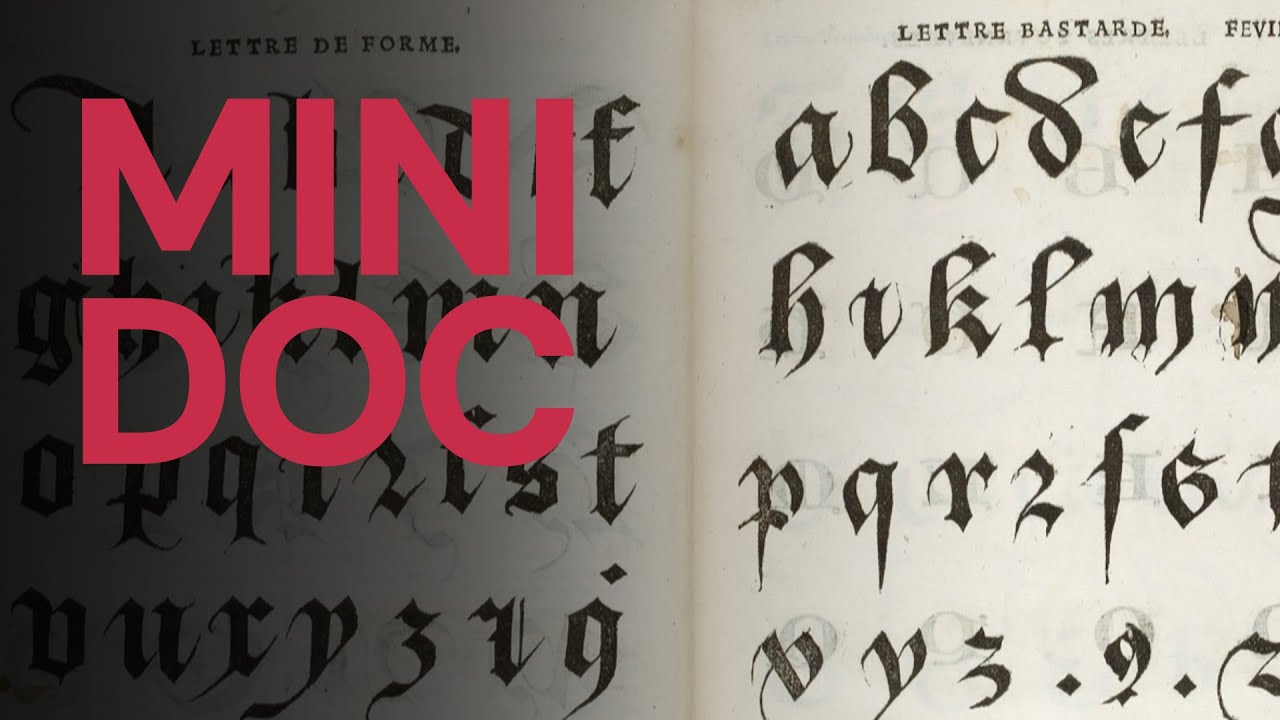 MINI
DOC
LETTRE DE FORME.
g h i k l m n
o p q r ꝛ ſ s t
v u x y z
LETTRE BASTARDE. FEVI
a b c d e f
h ı k l m n
p q r ꝛ ſ s t
v y z . 9 .